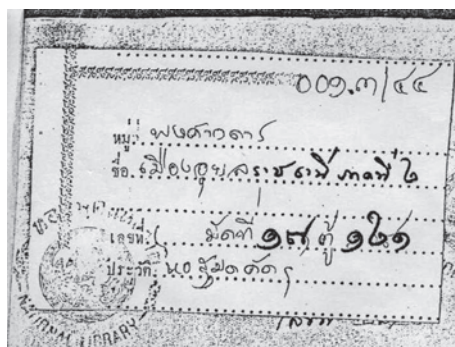 ๐๐๑.๓/๔๔
หมู่ พงศาวดาร
ชื่อ เมืองอุบลราชธานี ภาคที่ ๖
เลขที่ มัดที่ ๑๗ ตู้ ๑๒๑
ประวัติ หอสมุด
NATIONAL LIBRARY